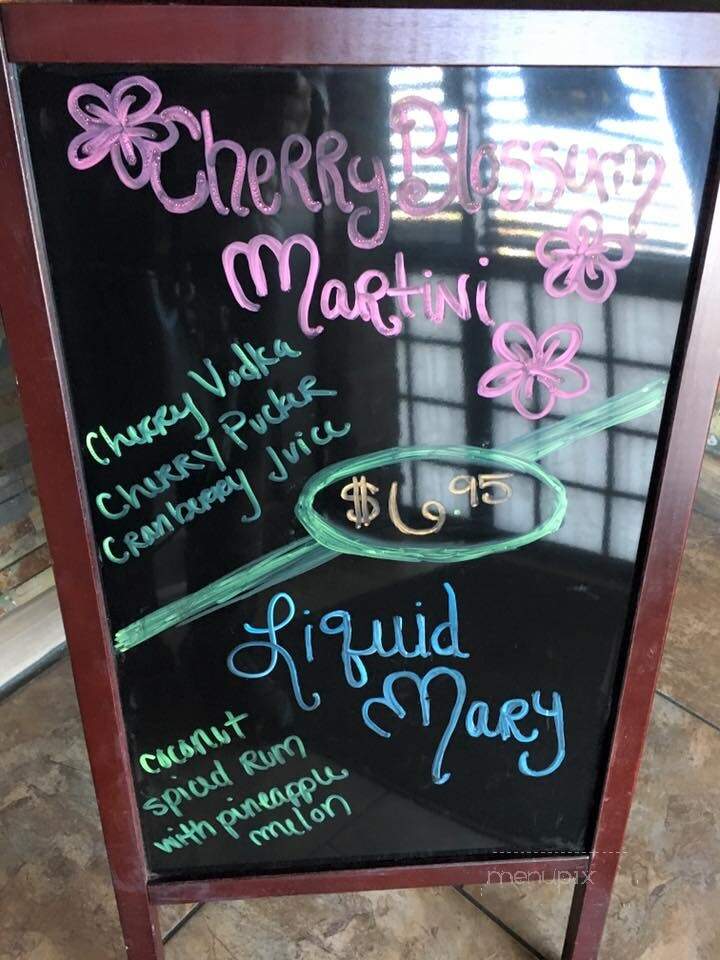 Cherry Blossum
Martini
Cherry Vodka
Cherry Pucker
Cranberry Juice
$6.95
Liquid
Mary
coconut
spiced Rum
with pineapple
melon
menupix